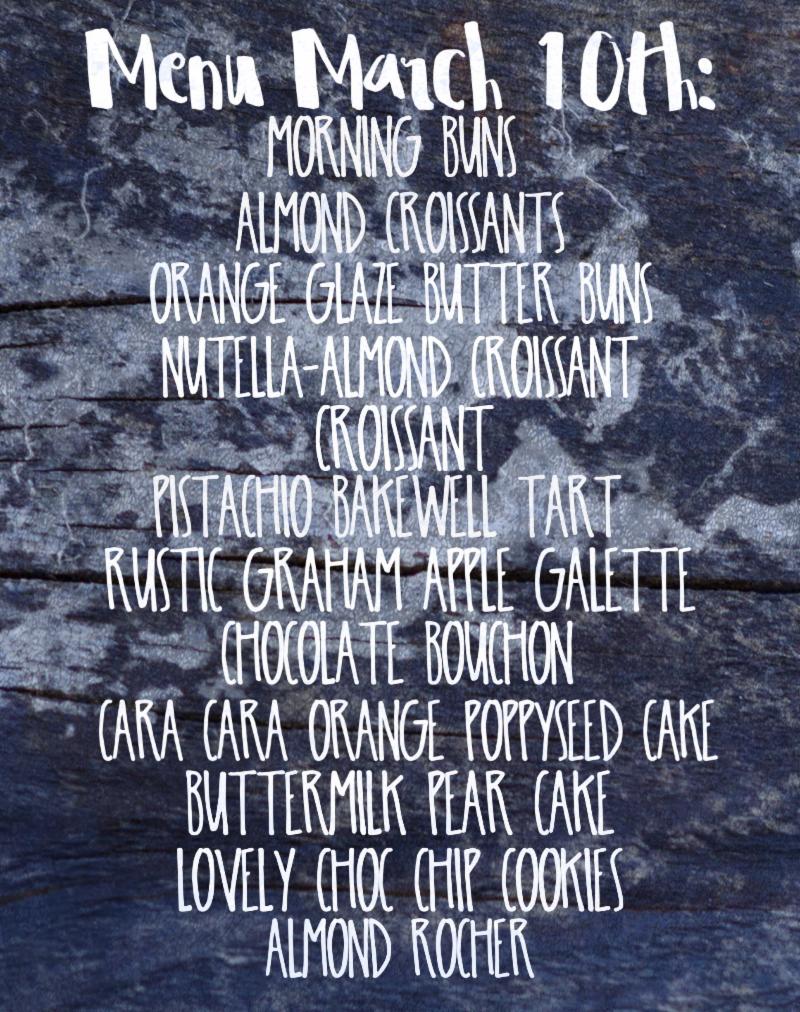 Menu March 10th:
MORNING BUNS
ALMOND CROISSANTS
ORANGE GLAZE BUTTER BUNS
NUTELLA-ALMOND CROISSANT
CROISSANT
PISTACHIO BAKEWELL TART
RUSTIC GRAHAM APPLE GALETTE
CHOCOLATE BOUCHON
CARA CARA ORANGE POPPYSEED CAKE
BUTTERMILK PEAR CAKE
LOVELY CHOC CHIP COOKIES
ALMOND ROCHER